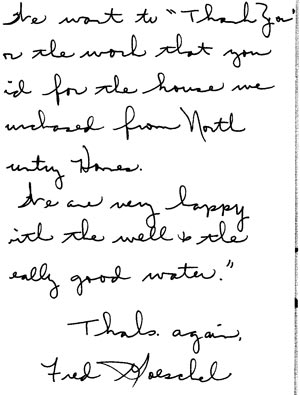 We want to "Thank You"
or the work that you
id for the house we
urchased from North
untry Homes.
We are very happy
ith the well & the
eally good water."
Thaks. again,
Fred